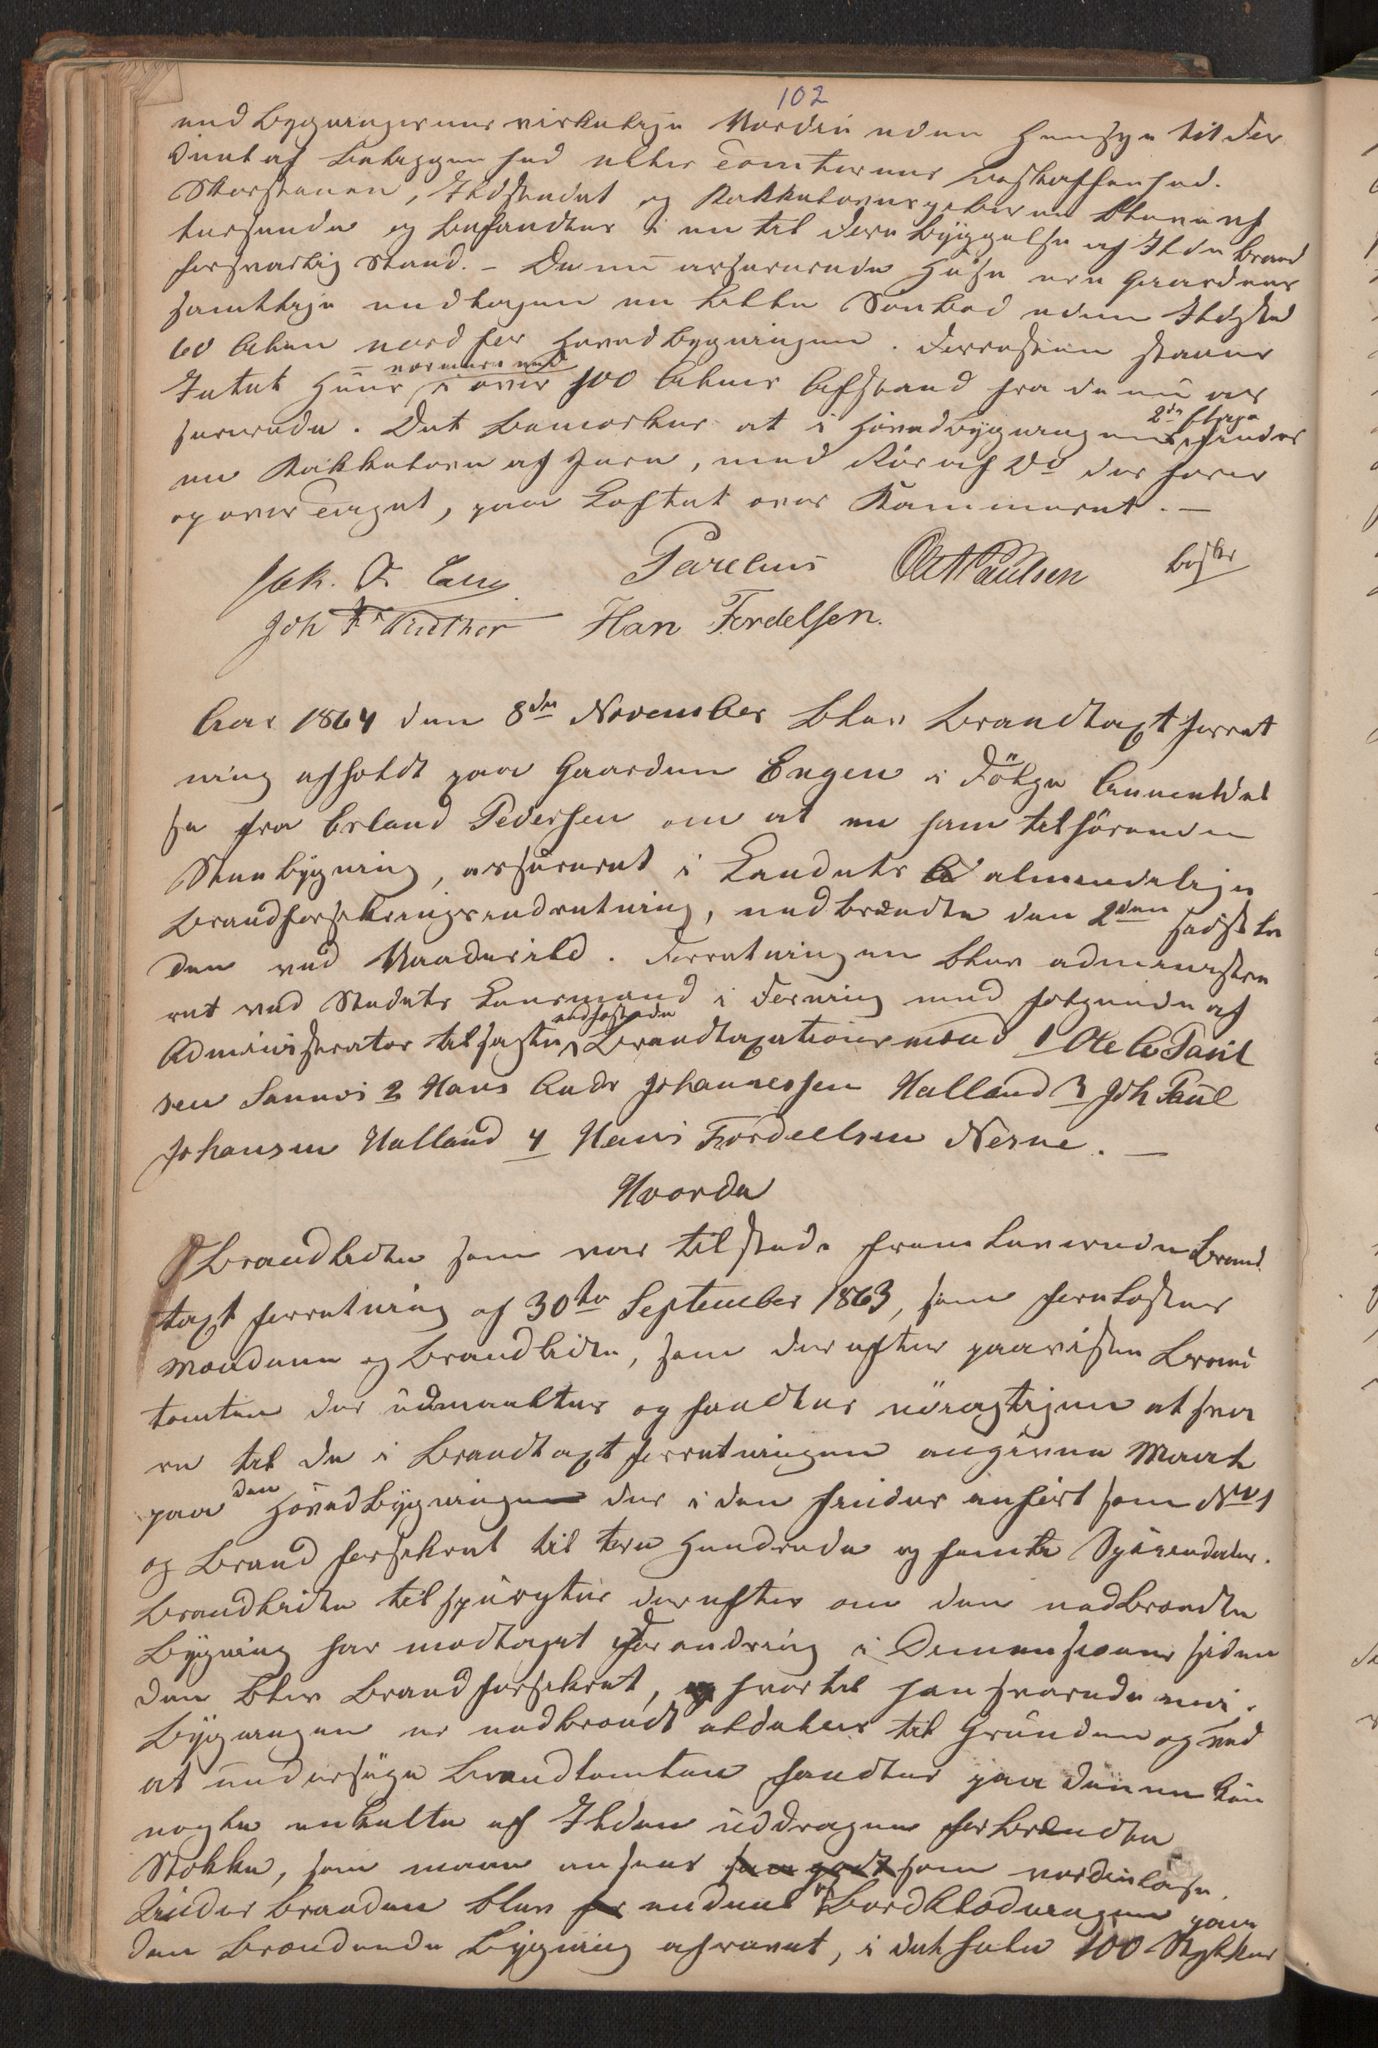 102
end Bygningernes virkelige Værdi uden Hensyn til der
vent af Beliggenhed eller Tomternes Beskaffenhed.
Skorstenen, Ildstedet og Kakkelovnsrørene bleve ef
terseede og befandtes i en til dere byggelse af Ildebrand
forsvarlig Stand. – De nu assurerede Huse ere Gaardens
samtlige undtagen en liden Smebod uden Ildsted
60 Alen nord for Hovedbygningen. Forresten staaer
Intet Huus nærmere end i over 100 Alens Afstand fra de nu as
surerede. Det bemærkes at i Hovedbygningens 2den Etage findes
en Kakkelovn af Jern, med Rør af Do der fører
op over Taget, paa Loftet over Kammeret. –
Parelius Ole A Paulsen
Hans Fordelsen.
Aar 1864 den 8de November blev Brandtaxtforret
ning afholdt paa Gaarden Engen i Følge Anmeldel
se fra Erland Pedersen om at en ham tilhørende
Stuebygning, assureret i Landets almindelige
Brandforsikringsindretning, nedbrændte den 2den sidstle
den ved Vaadeild. Forretningen blev administre
ret ved Stedets Lensmand i Forening med følgende af
Administrator tilsagte edfæstede Brandtaxationsmænd 1 Ole A Paul
sen Sannes 2 Hans Andr Johannessen Halland 3 Joh Paul
Johansen Halland 4 Hans Fordelsen Nesne. –
Hvorda
Brandlidte som var tilstede fremleverede Brand
taxtforretning af 30te September 1863, som forelæstes
Mændene og Brandlidte, som derefter paaviste Brand
tomten der udmaaltes og fandtes nöiagtigen at sva
re til de i Brandtaxtforretningen angivne Maal
paa den Hovedbygning der i den findes anført som No 1
og Brandforsikret til tre Hundrede og femti Speciedaler.
Brandlidte tilspurgtes derefter om den nedbrændte
Bygning har modtaget Forandring i Dimensioner siden
den blev Brandforsikret, hvortil han svarede nei.
Bygningen er nedbrændt aldeles til Grunden og ved
at undersøge Brandtomten fandtes paa denne kun
nogle enkelte af Ilden uddragne forbrændte
Stokke, som maa ansees som værdiløse.
Under Branden blev endeel af Bordklædningen paa
den brændende Bygning afrevet, i det hele 100 Stykker